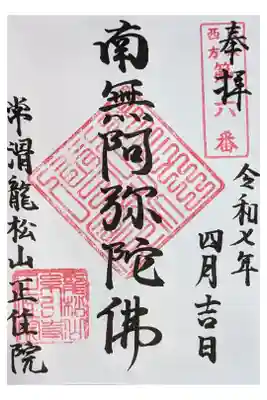 奉拝
西方
第六番
令和七年
四月吉日
南無阿弥陀佛
常滑龍松山正住院